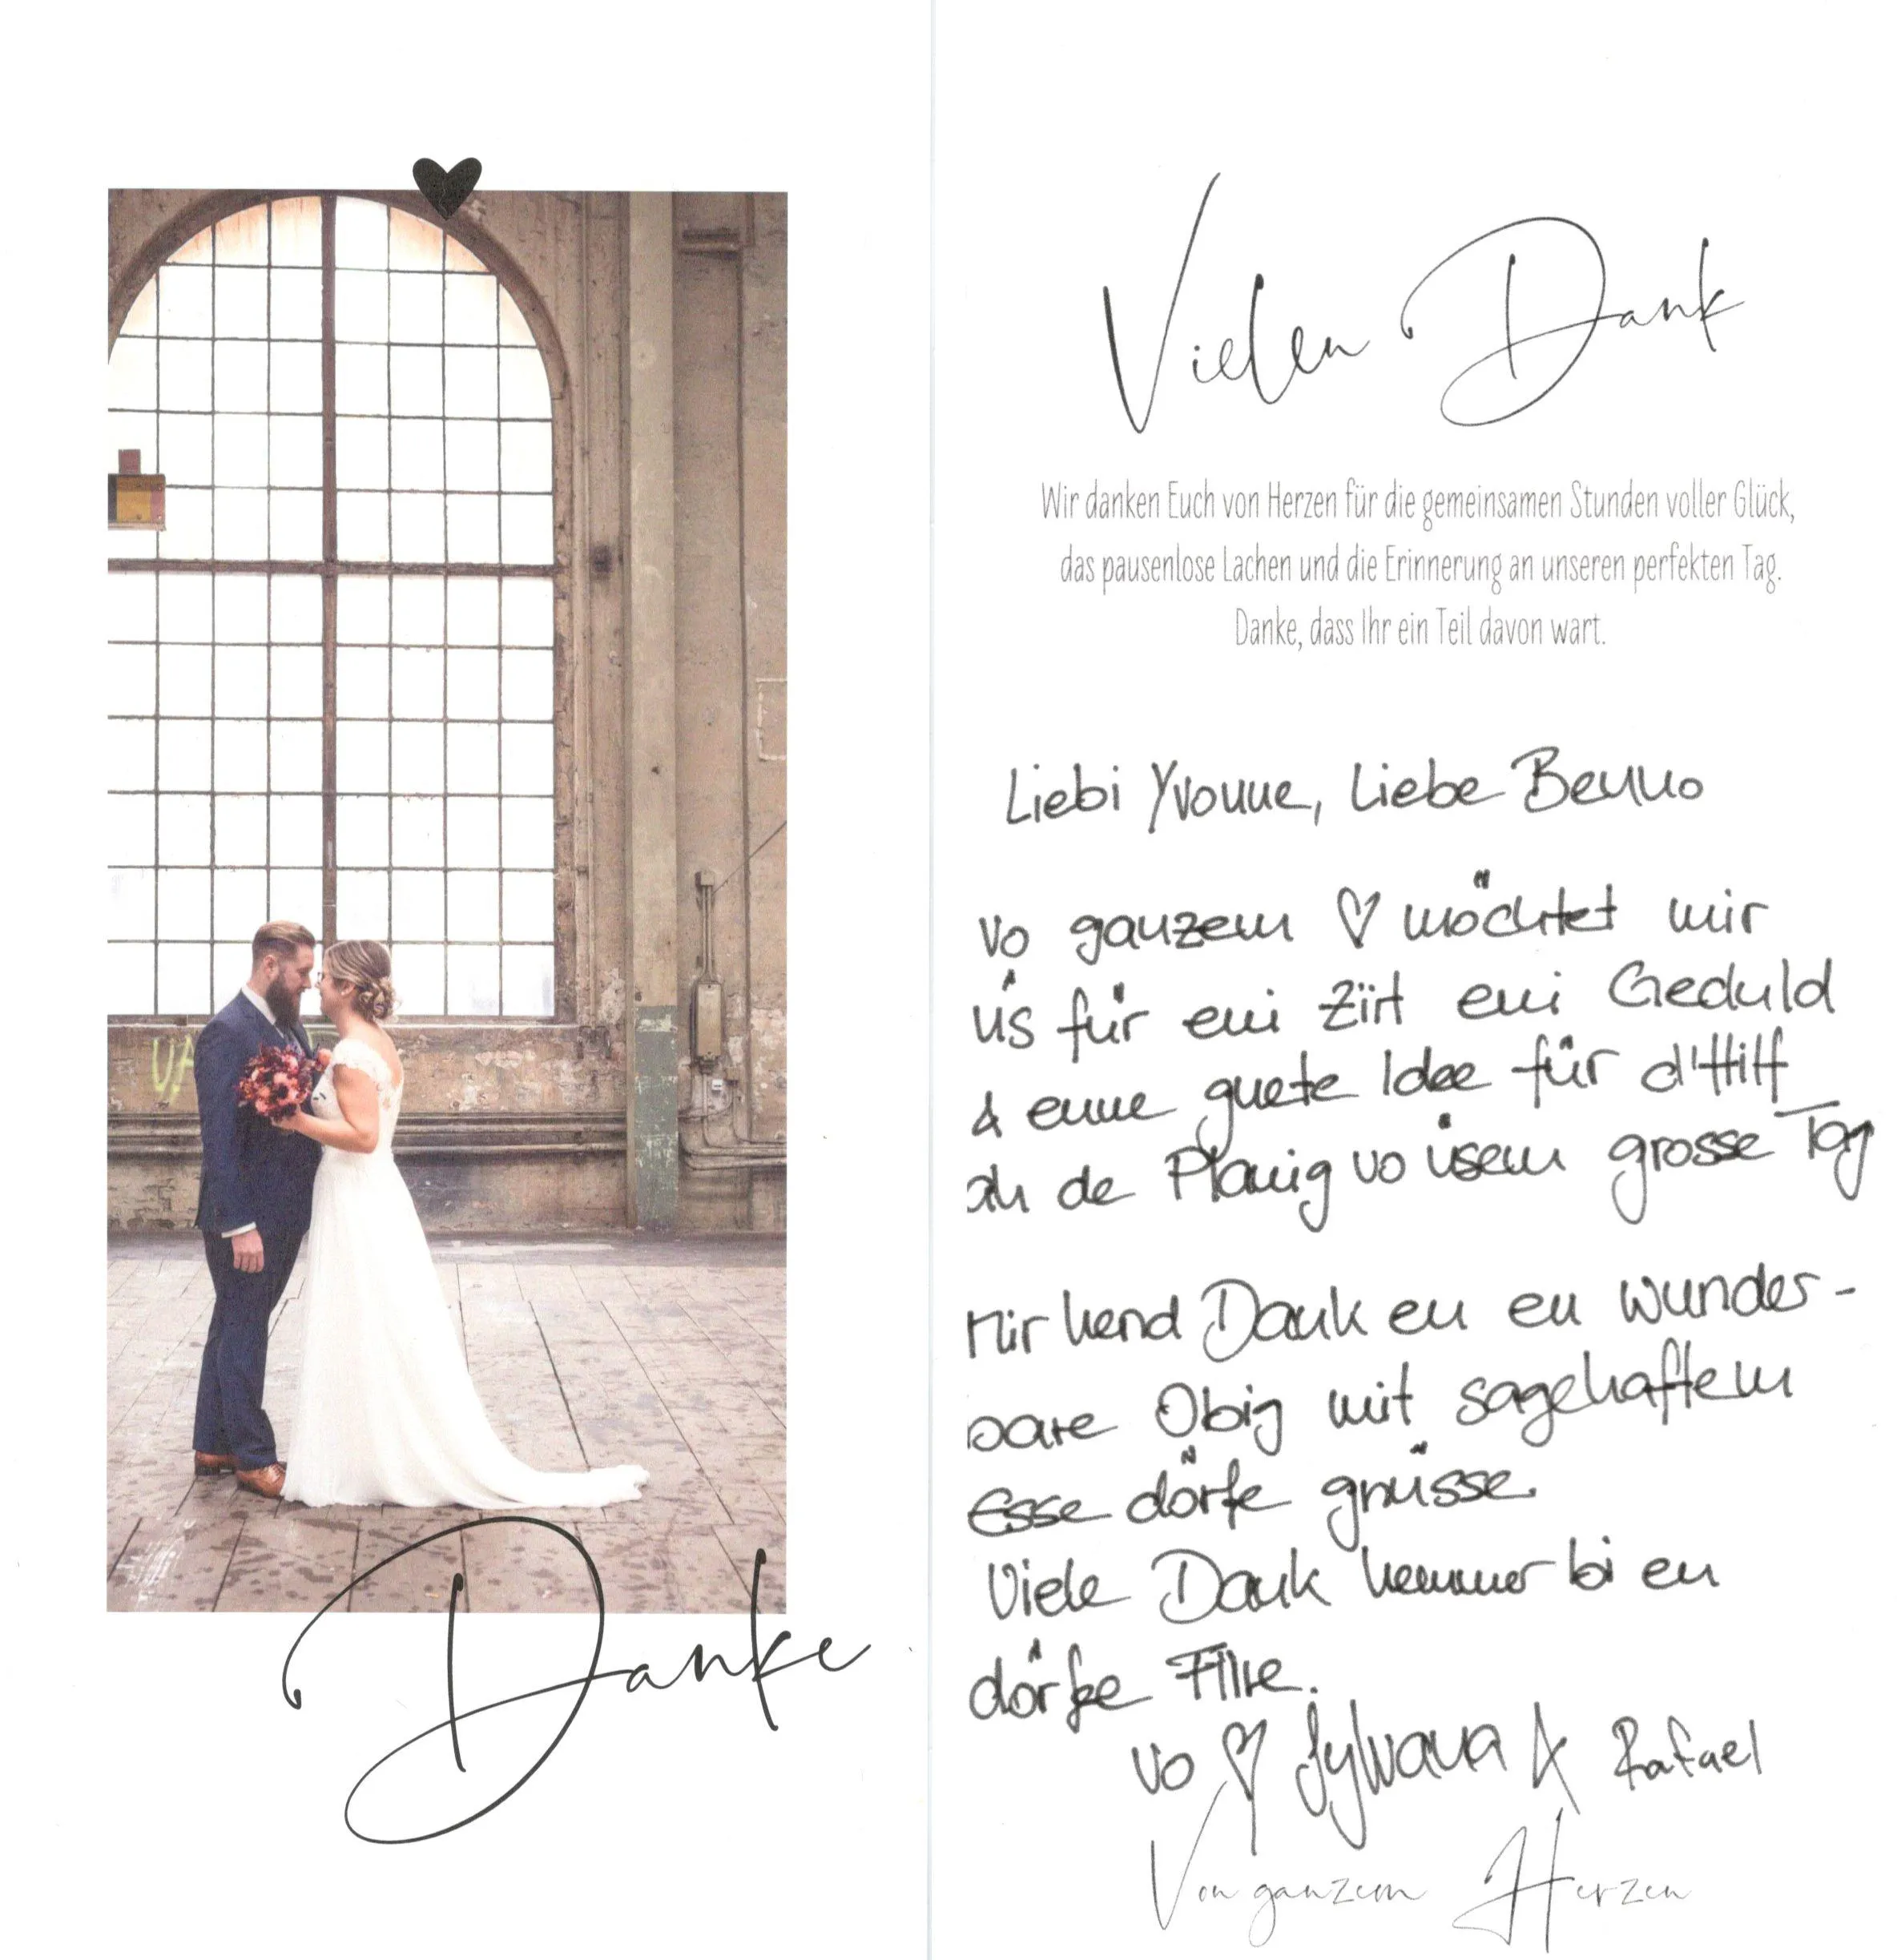 Danke
Vielen Dank
Wir danken Euch von Herzen für die gemeinsamen Stunden voller Glück,
das pausenlose Lachen und die Erinnerung an unseren perfekten Tag.
Danke, dass Ihr ein Teil davon wart.
Liebi Yvonne, Liebe Benno
Vo ganzem ♡ möchtet mir
üs für eui Ziit eui Geduld
& eune guete Idee für d'Hilf
ah de Planig vo üsem grosse Tag
Mir hend Dank eu en wunder-
bare Obig mit sagehaftem
Esse dörfe gnüsse.
Viele Dank hemmer bi eu
dörfe
vo ♡ Sylvana & Rafael
Von ganzem Herzen